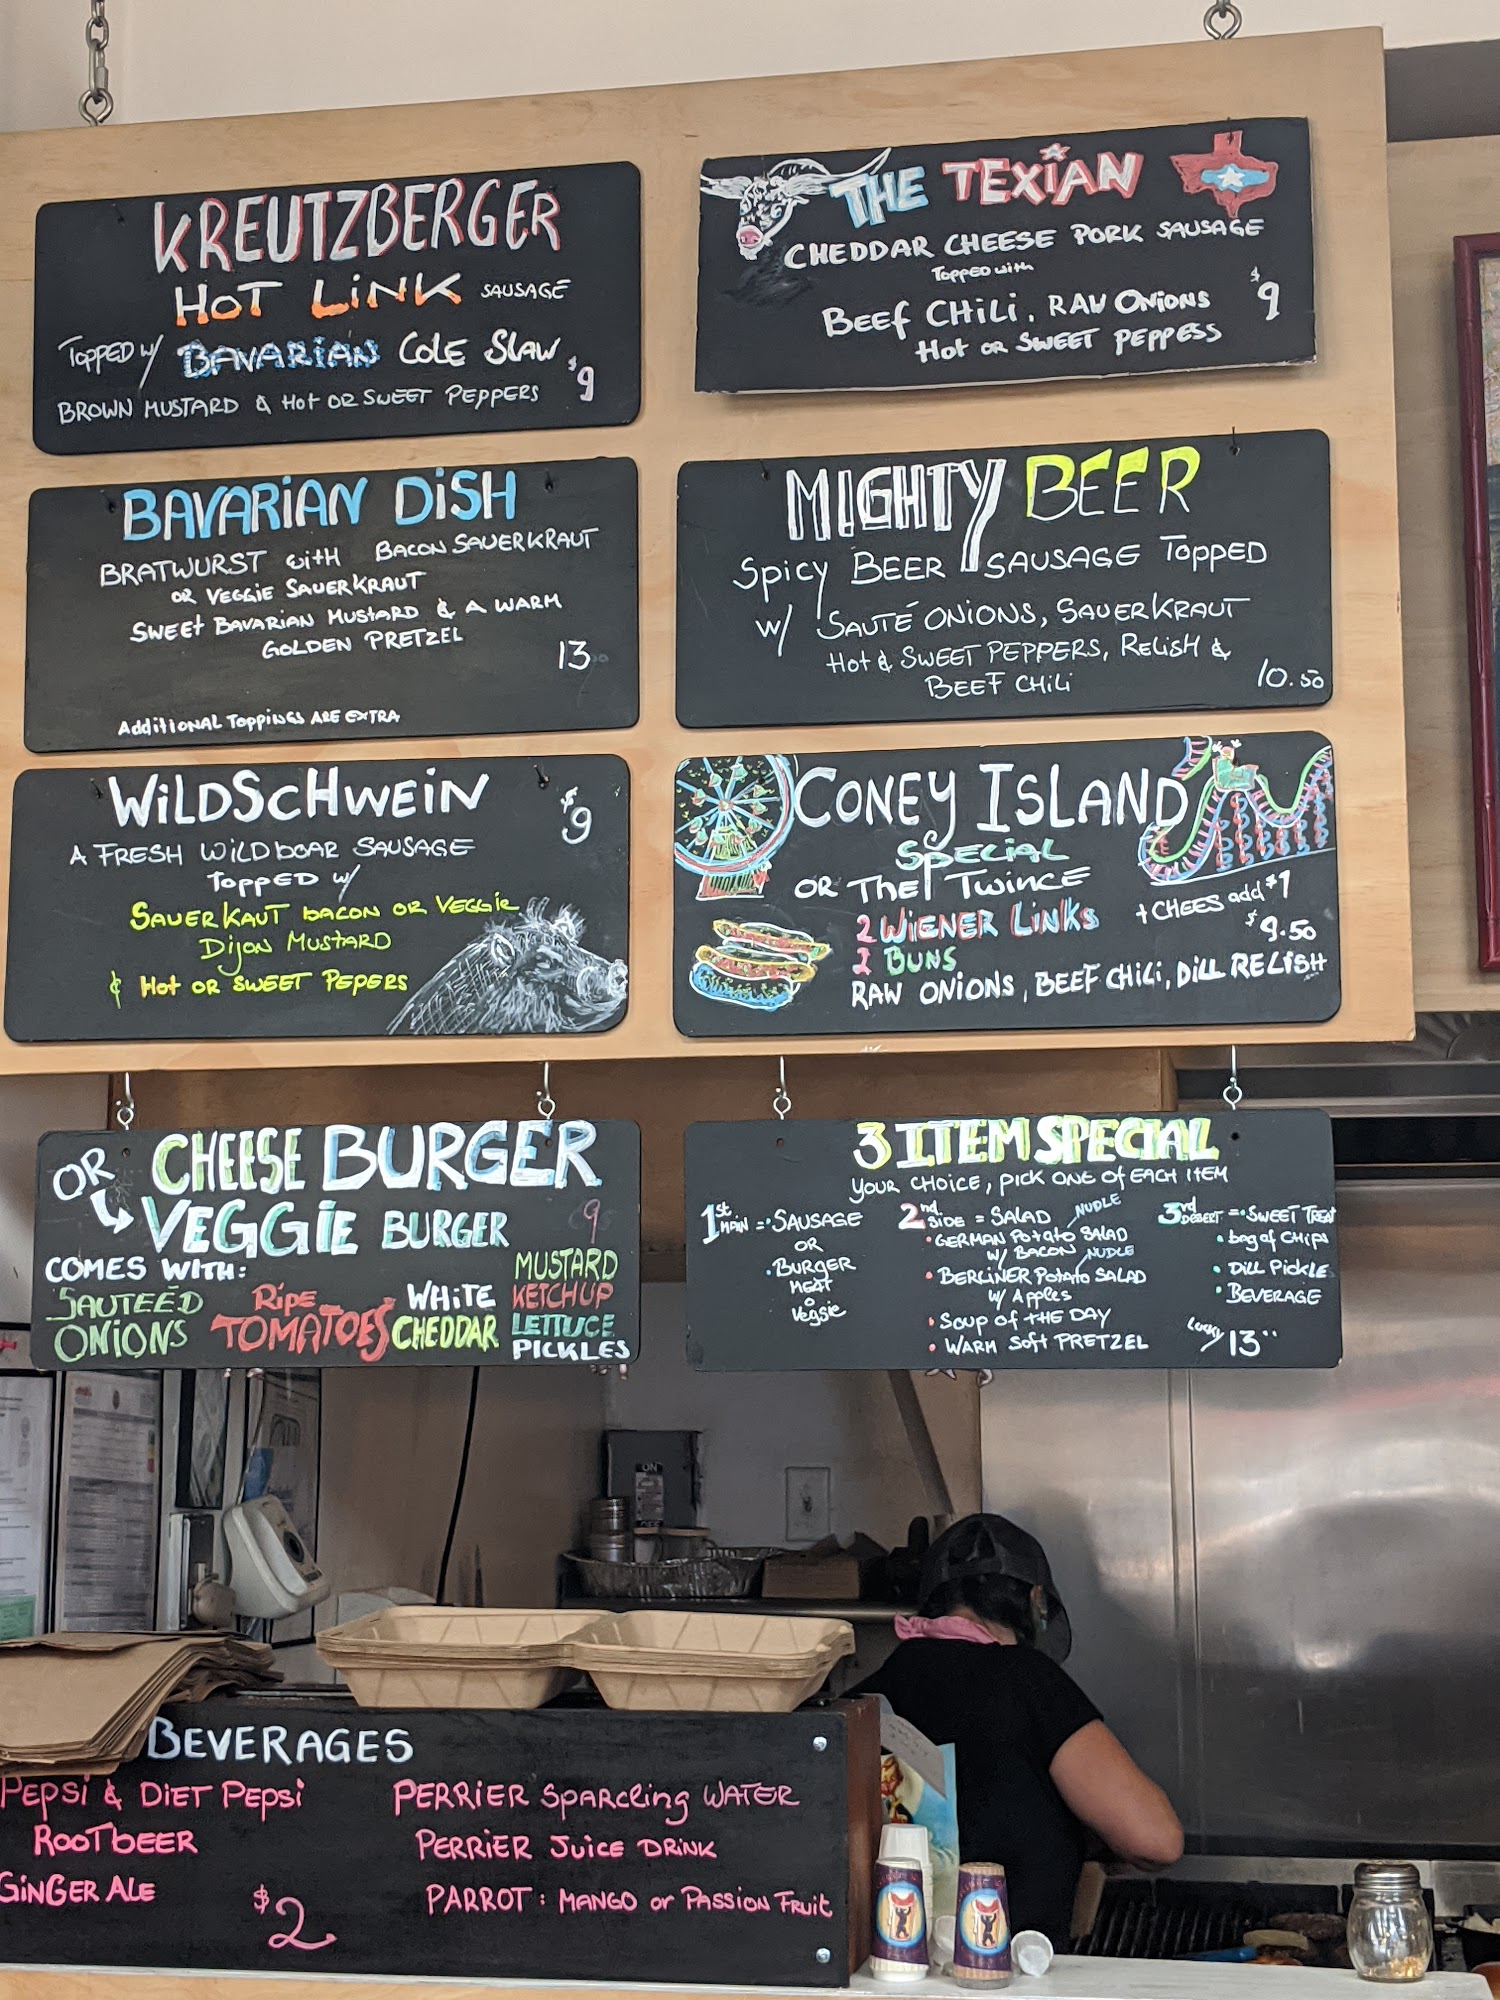 KREUTZBERGER
HOT LINK SAUSAGE
TOPPED W/ BAVARIAN COLE SLAW
$9
BROWN MUSTARD & HOT OR SWEET PEPPERS
THE TEXIAN
CHEDDAR CHEESE PORK SAUSAGE
TOPPED with
BEEF CHILI, RAW ONIONS
HOT OR SWEET PEPPESS
$9
BAVARIAN DISH
BRATWURST with BACON SAUERKRAUT
OR VEGGIE SAUERKRAUT
SWEET BAVARIAN MUSTARD & A WARM
GOLDEN PRETZEL
13
ADDITIONAL TOPPINGS ARE EXTRA
MIGHTY BEER
SPICY BEER SAUSAGE TOPPED
W/ SAUTÉ ONIONS, SAUERKRAUT
HOT & SWEET PEPPERS, RELISH &
BEEF CHILI
10.50
WILDSCHWEIN
$9
A FRESH WILD BOAR SAUSAGE
TOPPED W/
SAUERKAUT BACON OR VEGGIE
DIJON MUSTARD
& HOT OR SWEET PEPERS
CONEY ISLAND
SPECIAL
OR THE TWINCE
+ CHEES add $1
2 WIENER LINKS
$9.50
2 BUNS
RAW ONIONS, BEEF CHILI, DILL RELISH
OR CHEESE BURGER
VEGGIE BURGER
9
COMES WITH:
SAUTEED
ONIONS
RIPE
TOMATOES
WHITE
CHEDDAR
MUSTARD
KETCHUP
LETTUCE
PICKLES
3 ITEM SPECIAL
YOUR CHOICE, PICK ONE OF EACH ITEM
1st MAIN = • SAUSAGE
OR
• BURGER
MEAT
o
Veggie
2nd SIDE = SALAD
NUDLE
• GERMAN POTATO SALAD
W/ BACON
NUDLE
• BERLINER POTATO SALAD
W/ Apples
• SOUP OF THE DAY
• WARM SOFT PRETZEL
3rd DESERT = • SWEET TREAT
• bag of CHIPS
• DILL PICKLE
• BEVERAGE
LUCKY 13
ON
BEVERAGES
PEPSI & DIET PEPSI
ROOTBEER
GINGER ALE
$2
PERRIER SPARCLING WATER
PERRIER JUICE DRINK
PARROT: MANGO or PASSION FRUIT